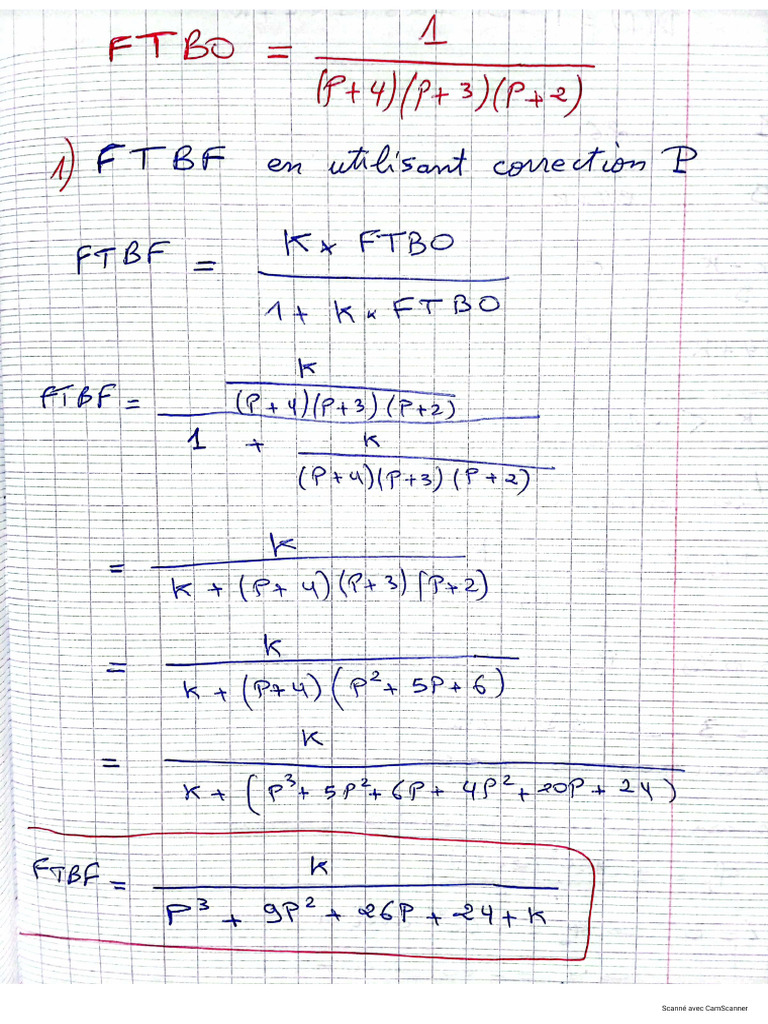 FTBO = 1 / (P+4)(P+3)(P+2)
1) FTBF en utilisant correction P
FTBF = K × FTBO / 1 + K × FTBO
FTBF = K / (P+4)(P+3)(P+2) / 1 + K / (P+4)(P+3)(P+2)
= K / K + (P+4)(P+3)(P+2)
= K / K + (P+4)(P² + 5P + 6)
= K / K + (P³ + 5P² + 6P + 4P² + 20P + 24)
FTBF = K / P³ + 9P² + 26P + 24 + K
Scanné avec CamScanner